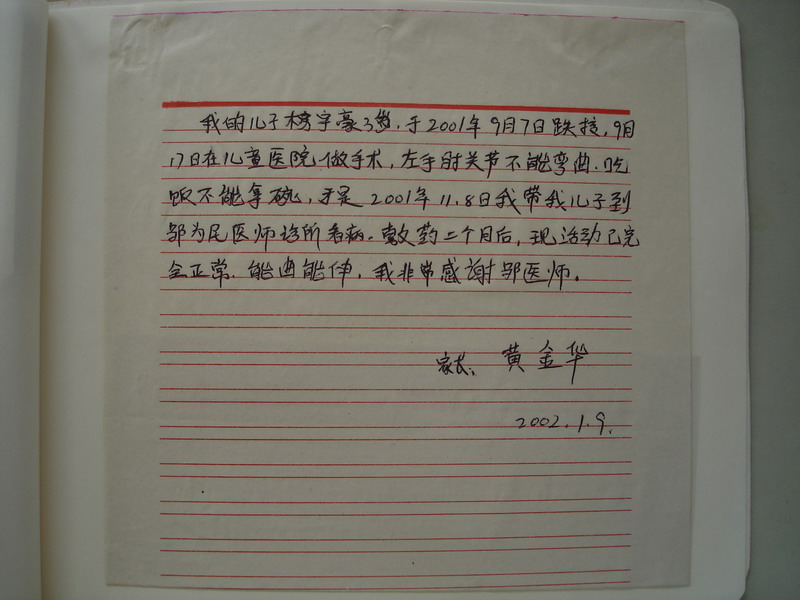 我的儿子杨宇豪3岁，于2001年9月7日跌挫，9月
17日在儿童医院做手术，左手肘关节不能弯曲，吃
饭不能拿碗，于是2001年11.8日我带我儿子到
邹为民医师诊所看病。敷药二个月后，现活动已完
全正常，能曲能伸，我非常感谢邹医师。
家长：黄金华
2002.1.9.